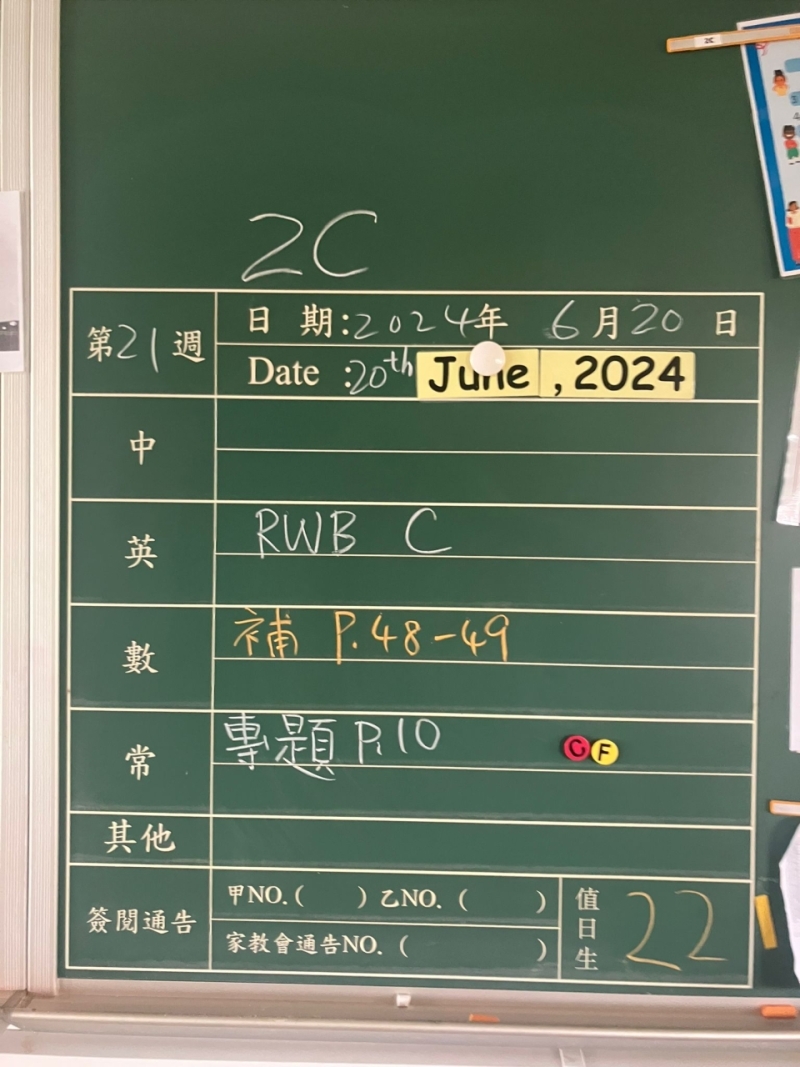 2C
2C
第21週
日 期:2024年 6月20日
Date :20th June , 2024
中
英
RWB C
數
補 P.48-49
常
專題 P.10
C F
其他
簽閱通告
甲NO.( ) 乙NO. ( )
家教會通告NO. ( )
值日生
22